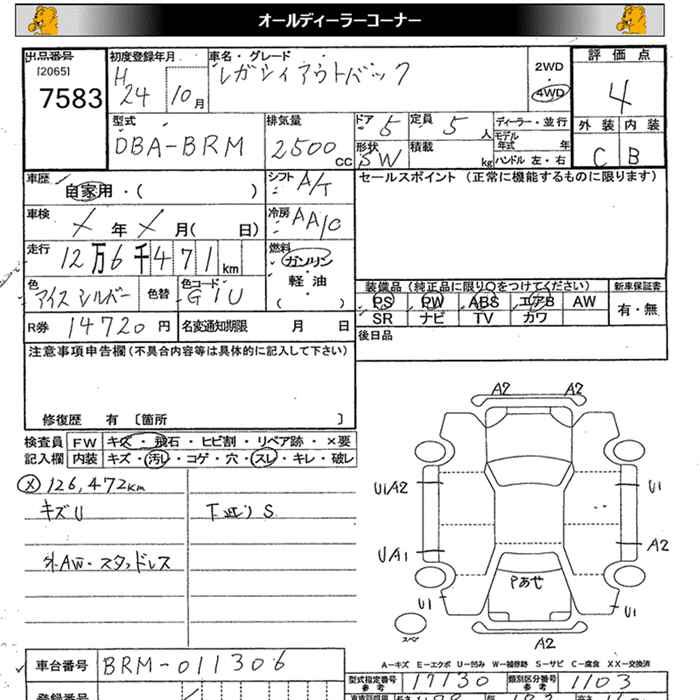 オールディーラーコーナー
出品番号
[2065]
7583
初度登録年月
H 24 10月
車名・グレード
レガシィアウトバック
2WD
・
4WD
評価点
4
外装 内装
C B
型式
DBA-BRM
排気量
2500 cc
ドア 5
定員 5人
ディーラー・並行
モデル年式 年
形状 SW
積載 kg
ハンドル 左・右
車歴
自家用・( )
シフト A/T
セールスポイント(正常に機能するものに限ります)
車検
X年X月( 日)
冷房 AA/C
走行
12万6千471km
燃料
ガソリン
軽油
( )
色
アイスシルバー
色替
色コード
G1U
装備品(純正品に限り○をつけてください)
新車保証書
PS PW ABS エアB AW
有・無
SR ナビ TV カワ
R券 14720円
名変通知期限 月 日
後日品
注意事項申告欄(不具合内容等は具体的に記入して下さい)
修復歴 有 〔箇所 〕
検査員 FW キズ・飛石・ヒビ割・リペア跡・×要
記入欄 内装 キズ・汚レ・コゲ・穴・スレ・キレ・破レ
X 126,472km
キズU
下廻りS
外AW・スタッドレス
A2 A2
U1A2 U1
UA1 A2
Pあせ
U1 U1
スペア
A2
A-キズ E-エクボ U-凹み W-補修跡 S-サビ C-腐食 XX-交換済
車台番号 BRM-011306
型式指定番号 参考 17130
類別区分番号 参考 1103
登録番号